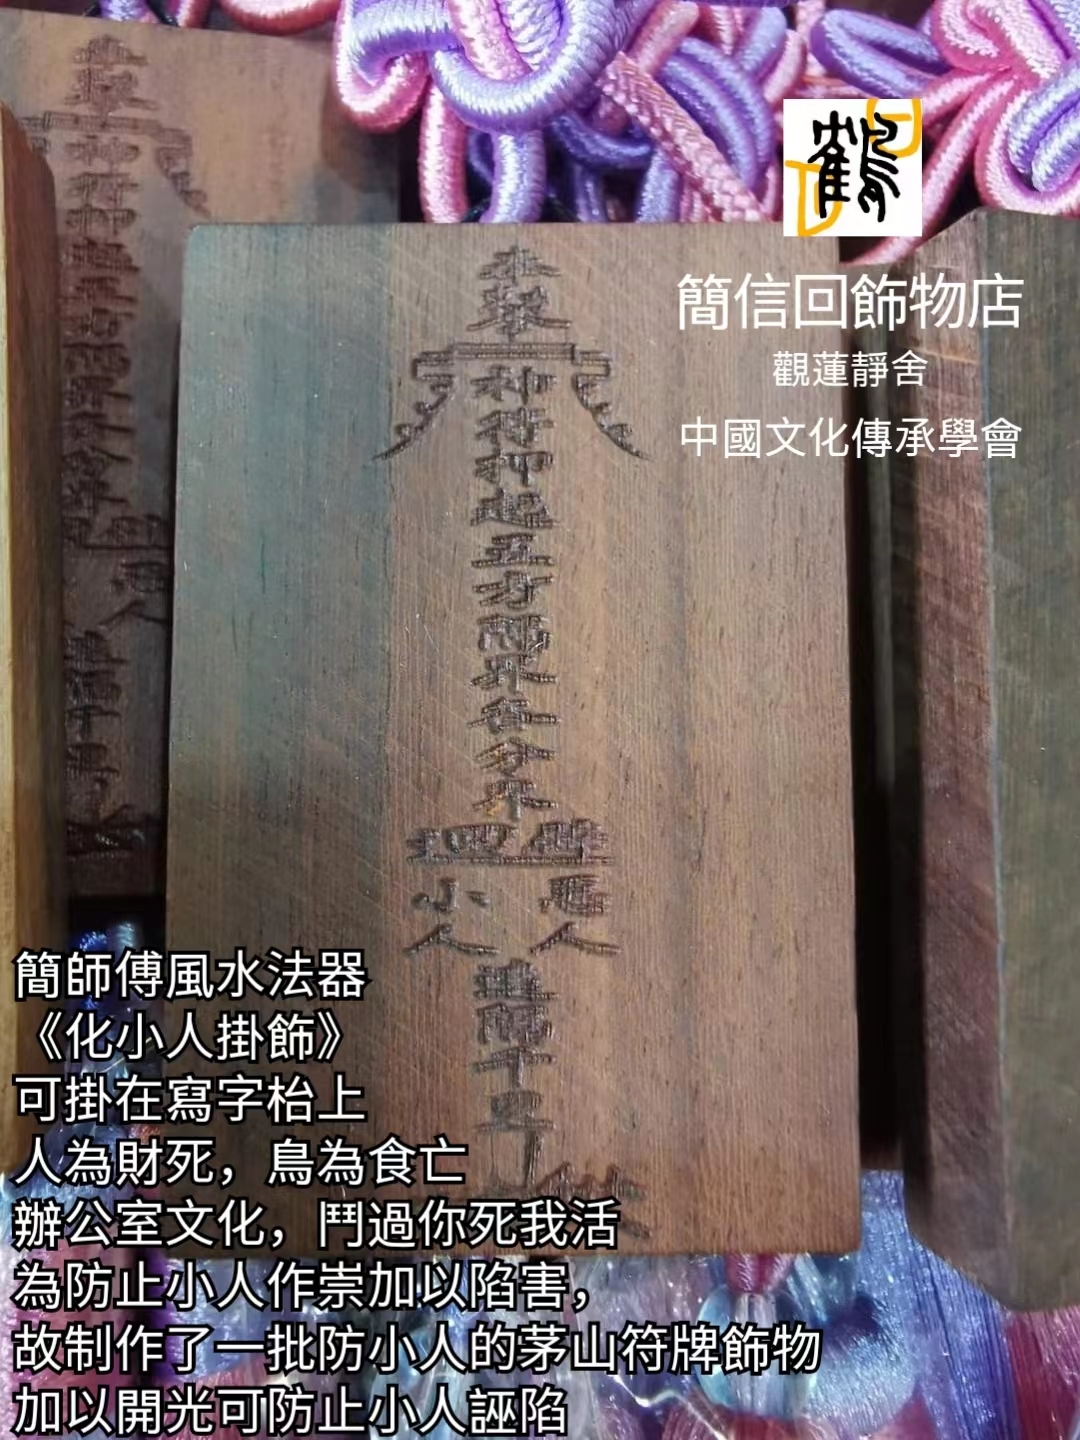 鶴
簡信回飾物店
觀蓮靜舍
中國文化傳承學會
奉
神符押起五方
各分
小人
惡人
千里
簡師傅風水法器
《化小人掛飾》
可掛在寫字枱上
人為財死，鳥為食亡
辦公室文化，鬥過你死我活
為防止小人作祟加以陷害，
故制作了一批防小人的茅山符牌飾物
加以開光可防止小人誣陷